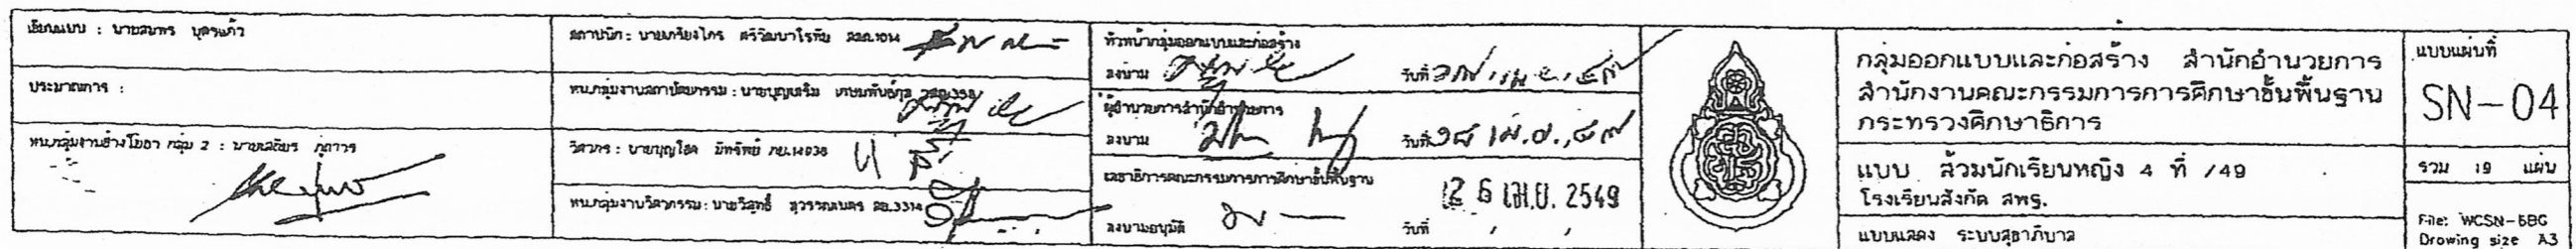 เขียนแบบ : นายสมทร บุตรแก้ว
ประมาณการ :
หน.กลุ่มงานช่างโยธา กลุ่ม 2 : นายเสถียร
สถาปนิก : นายเกรียงไกร
หน.กลุ่มงานสถาปัตยกรรม : นายบุญเสริม
วิศวกร : นายบุญโชค มีทรัพย์ ภย.14036
หน.กลุ่มงานวิศวกรรม : นายวิสุทธิ์ สุวรรณเนตร สย.3314
หัวหน้ากลุ่มออกแบบและก่อสร้าง
ลงนาม วันที่
ผู้อำนวยการสำนักอำนวยการ
ลงนาม วันที่
เลขาธิการคณะกรรมการการศึกษาขั้นพื้นฐาน
26 เม.ย. 2549
ลงนามอนุมัติ วันที่ / /
กลุ่มออกแบบและก่อสร้าง สำนักอำนวยการ
สำนักงานคณะกรรมการการศึกษาขั้นพื้นฐาน
กระทรวงศึกษาธิการ
แบบ ส้วมนักเรียนหญิง 4 ที่ /49
โรงเรียนสังกัด สพฐ.
แบบแสดง ระบบสุขาภิบาล
แบบแผ่นที่
SN-04
รวม 19 แผ่น
File: WCSN-6BG
Drowing size A3